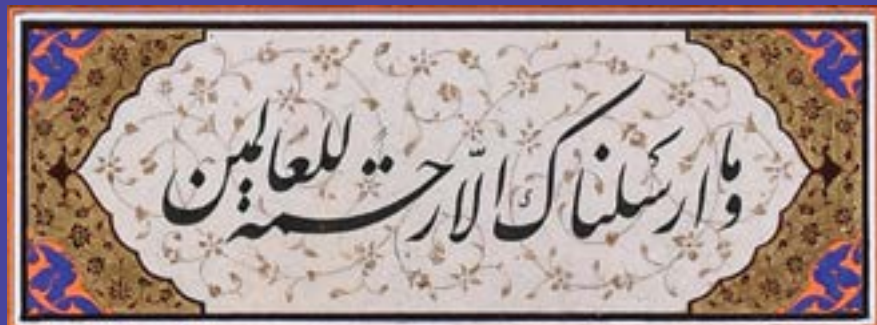 وما ارسلناك الّا رحمة للعالمین